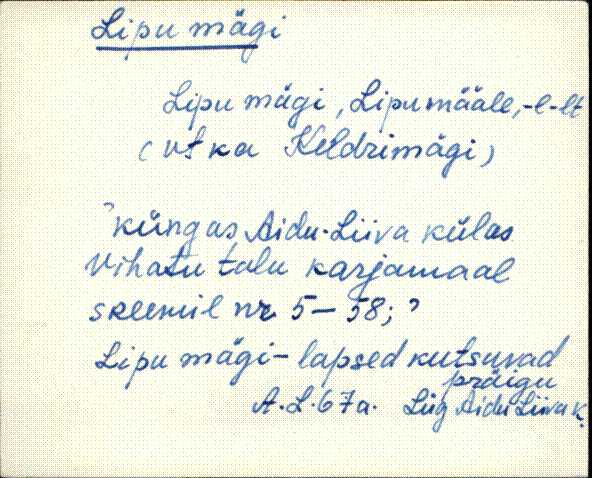 Lipu mägi
Lipu mägi, Lipumääle, -l -lt
(vt ka Keldrimägi)
? küngas Aidu-Liiva külas
Vihatu talu karjamaal
skeemil nr 5 – 58; ?
Lipu mägi – lapsed kutsuvad
präigu
A. L. 67a. Lüg Aidu Liiva k.